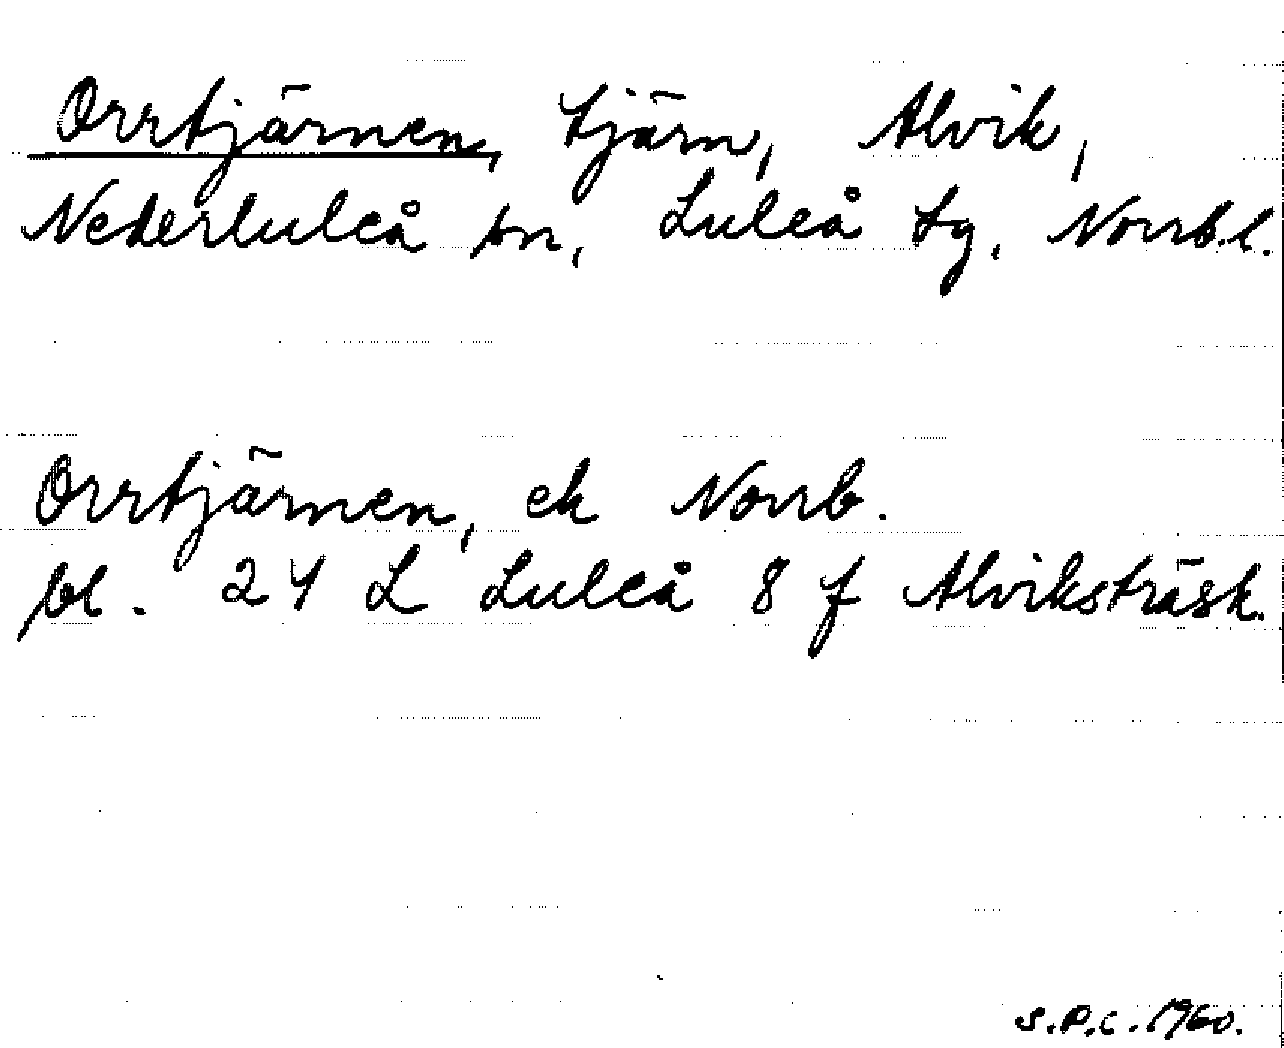 Orrtjärnen, tjärn, Alvik,
Nederluleå sn, Luleå tg. Norrb.l.
Orrtjärnen, ek Norrb.
bl. 24 L Luleå 8 f Alviksträsk.
S.P.C. 1960.